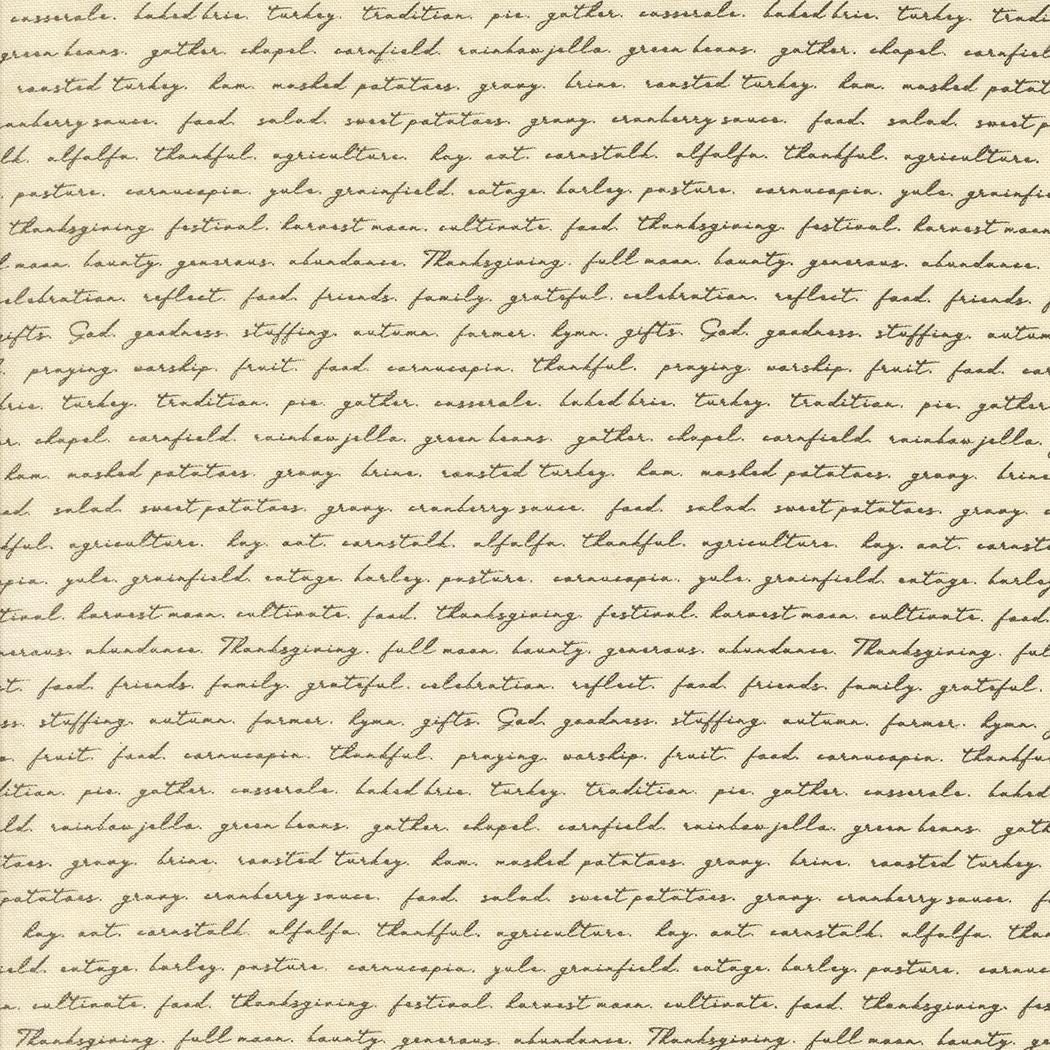 casserale. baked brie. turkey. tradition. pie. gather. casserale. baked brie. turkey. tradi
green beans. gather. chapel. cornfield. rainbow jello. green beans. gather. chapel. cornfiel
roasted turkey. ham. mashed potatoes. gravy. brine. roasted turkey. ham. mashed potat
anberry sauce. food. salad. sweet potatoes. gravy. cranberry sauce. food. salad. sweet p
lk. alfalfa. thankful. agriculture. hay. oat. cornstalk. alfalfa. thankful. agriculture.
. pasture. cornucopia. yule. grainfield. eatage. barley. pasture. cornucopia. yule. grainfie
thanksgiving. festival. harvest moon. cultivate. food. thanksgiving. festival. harvest moon
l moon. bounty. generous. abundance. Thanksgiving. full moon. bounty. generous. abundance.
elebration. reflect. food. friends. family. grateful. celebration. reflect. food. friends. f
gifts. God. goodness. stuffing. autumn. farmer. hymn. gifts. God. goodness. stuffing. autum
. praying. worship. fruit. food. cornucopia. thankful. praying. worship. fruit. food. cor
brie. turkey. tradition. pie. gather. casserale. baked brie. turkey. tradition. pie. gather
r. chapel. cornfield. rainbow jello. green beans. gather. chapel. cornfield. rainbow jello.
ham. mashed potatoes. gravy. brine. roasted turkey. ham. mashed potatoes. gravy. brine
od. salad. sweet potatoes. gravy. cranberry sauce. food. salad. sweet potatoes. gravy. c
kful. agriculture. hay. oat. cornstalk. alfalfa. thankful. agriculture. hay. oat. cornsta
opia. yule. grainfield. eatage. barley. pasture. cornucopia. yule. grainfield. eatage. barley
tival. harvest moon. cultivate. food. thanksgiving. festival. harvest moon. cultivate. food.
nerous. abundance. Thanksgiving. full moon. bounty. generous. abundance. Thanksgiving. ful
ct. food. friends. family. grateful. celebration. reflect. food. friends. family. grateful.
ss. stuffing. autumn. farmer. hymn. gifts. God. goodness. stuffing. autumn. farmer. hymn. g
p. fruit. food. cornucopia. thankful. praying. worship. fruit. food. cornucopia. thankfu
dition. pie. gather. casserale. baked brie. turkey. tradition. pie. gather. casserale. baked
ld. rainbow jello. green beans. gather. chapel. cornfield. rainbow jello. green beans. gath
toes. gravy. brine. roasted turkey. ham. mashed potatoes. gravy. brine. roasted turkey.
potatoes. gravy. cranberry sauce. food. salad. sweet potatoes. gravy. cranberry sauce. f
hay. oat. cornstalk. alfalfa. thankful. agriculture. hay. oat. cornstalk. alfalfa. than
ield. eatage. barley. pasture. cornucopia. yule. grainfield. eatage. barley. pasture. cornuc
n. cultivate. food. thanksgiving. festival. harvest moon. cultivate. food. thanksgiving. fes
Thanksgiving. full moon. bounty. generous. abundance. Thanksgiving. full moon. bounty. ge